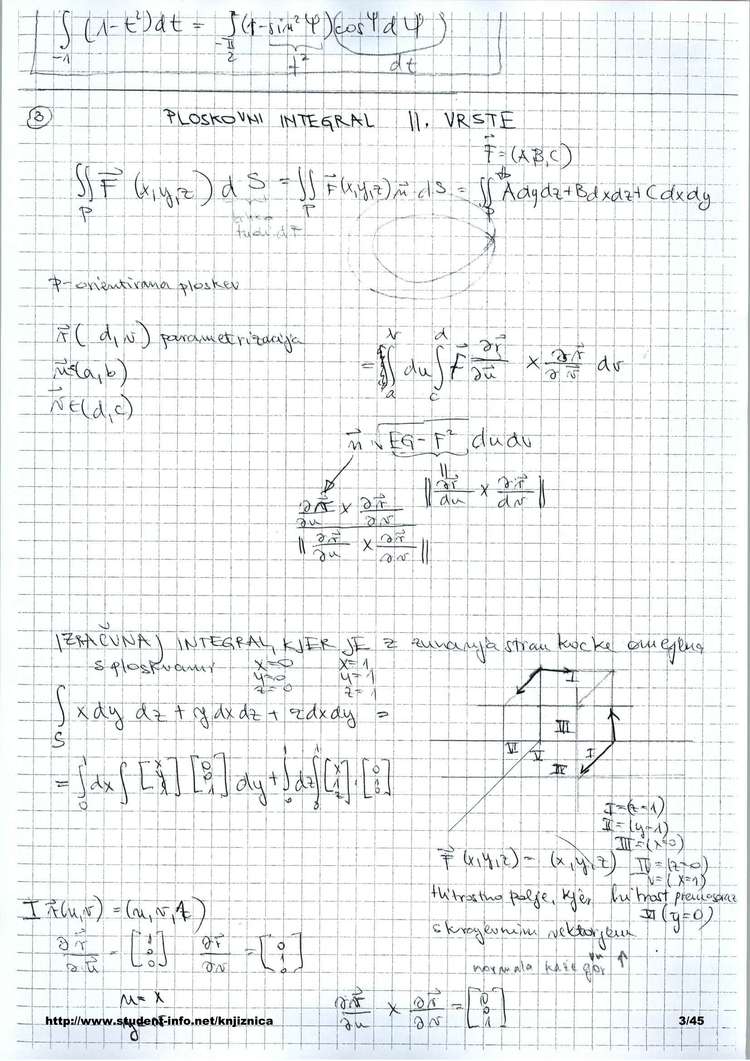 ∫_{-1} (1-t²)dt = ∫_{-π/2} (1-sin²φ)(cosφ dφ)
t² dt
③ PLOSKOVNI INTEGRAL II. VRSTE
F⃗=(A,B,C)
∬_P F⃗(x,y,z) dS = ∬_P F⃗(x,y,z) n⃗ dS = ∬_P A dy dz + B dx dz + C dx dy
tudi dF
P-orientirana ploskev
r⃗(d,v) parametrizacija
u⃗∈(a,b)
v⃗∈(d,c)
= ∫_a du ∫_c^d F⃗ ∂r⃗/∂u⃗ × ∂r⃗/∂v⃗ dv
n⃗ √(EG-F²) du dv
‖∂r⃗/du × ∂r⃗/dv‖
∂r⃗/∂u × ∂r⃗/∂v
‖∂r⃗/∂u × ∂r⃗/∂v‖
IZRAČUNAJ INTEGRAL, KJER JE z zunanja stran kocke omejena
s ploskvami x=0 x=1
y=0 y=1
z=0 z=1
∫_S x dy dz + y dx dz + z dx dy =
I
III
VI V I
IV
= ∫_0^1 dx ∫ [x y 1] [0 0 1] dy + ∫_0^1 dz ∫_0^1 [x 1 z] · [0 1 0]
I=(z=1)
II=(y=1)
III=(x=0)
F⃗(x,y,z) = (x,y,z) IV=(z=0)
V=(x=1)
hitrostno polje, kjer hitrost
VI(y=0)
s krajevnim vektorjem
normala kaže gor ↑
I r⃗(u,v) = (u,v,1)
∂r⃗/∂u = [1 0 0] ∂r⃗/∂v = [0 1 0]
u=x
∂r⃗/∂u × ∂r⃗/∂v = [0 0 1]
http://www.student-info.net/knjiznica
3/45